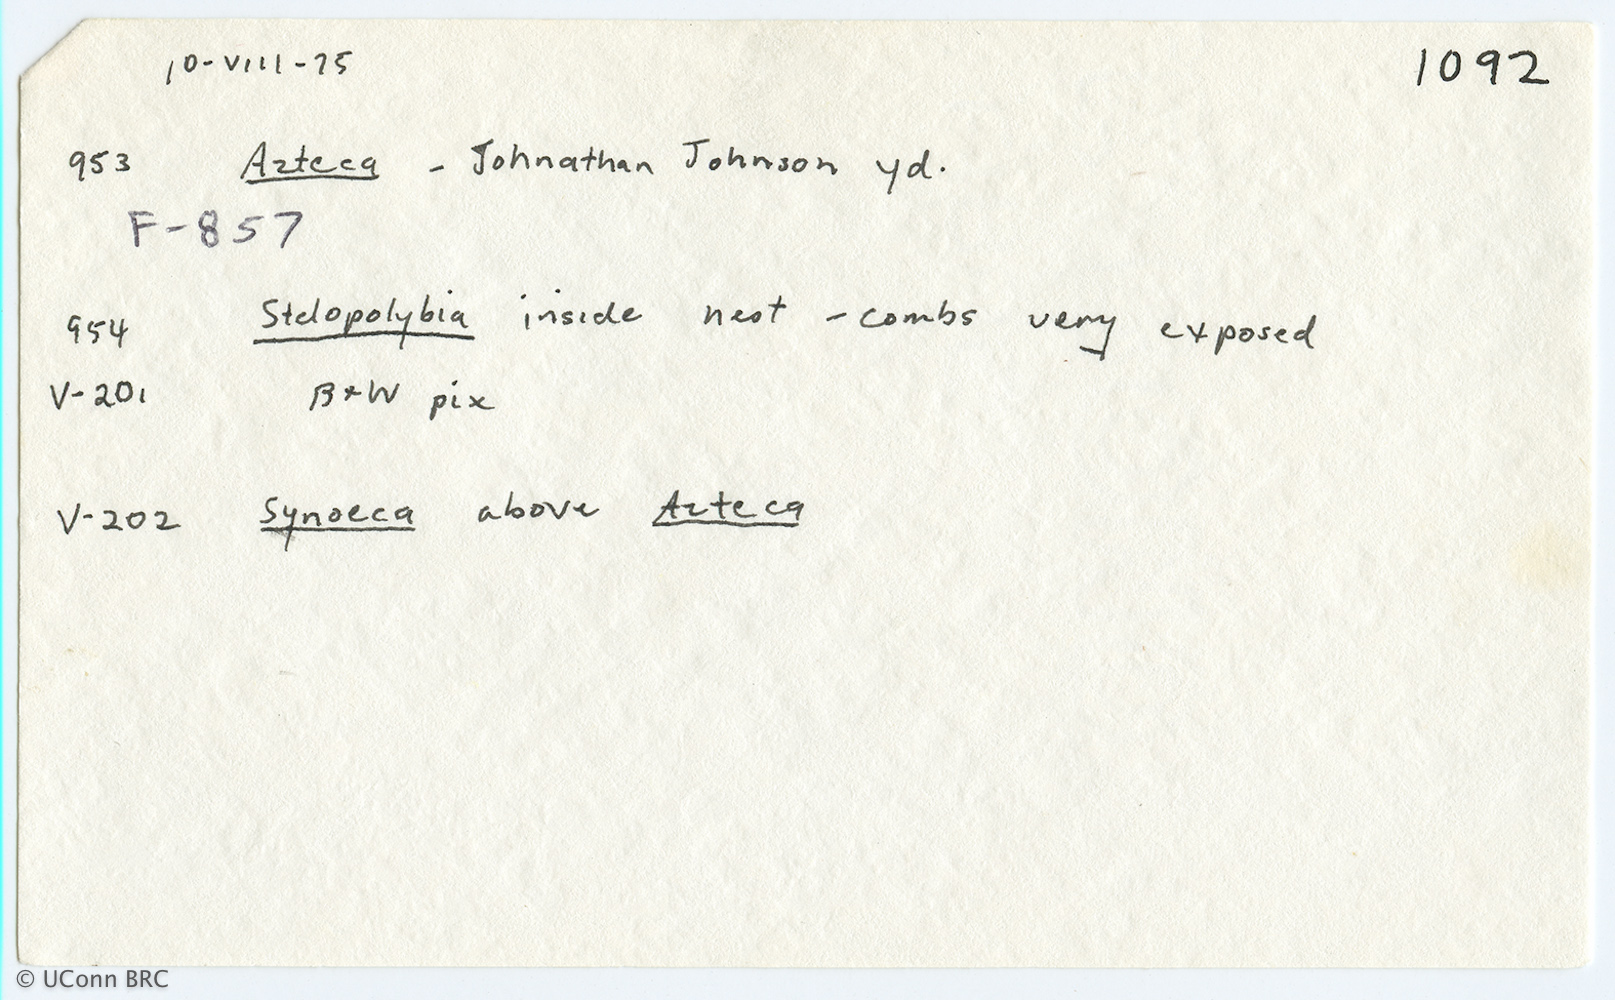 10-VIII-75 1092
953 Azteca - Johnathan Johnson yd.
F-857
954 Stelopolybia inside nest - combs very exposed
V-201 B+W pix
V-202 Synoeca above Azteca
© UConn BRC